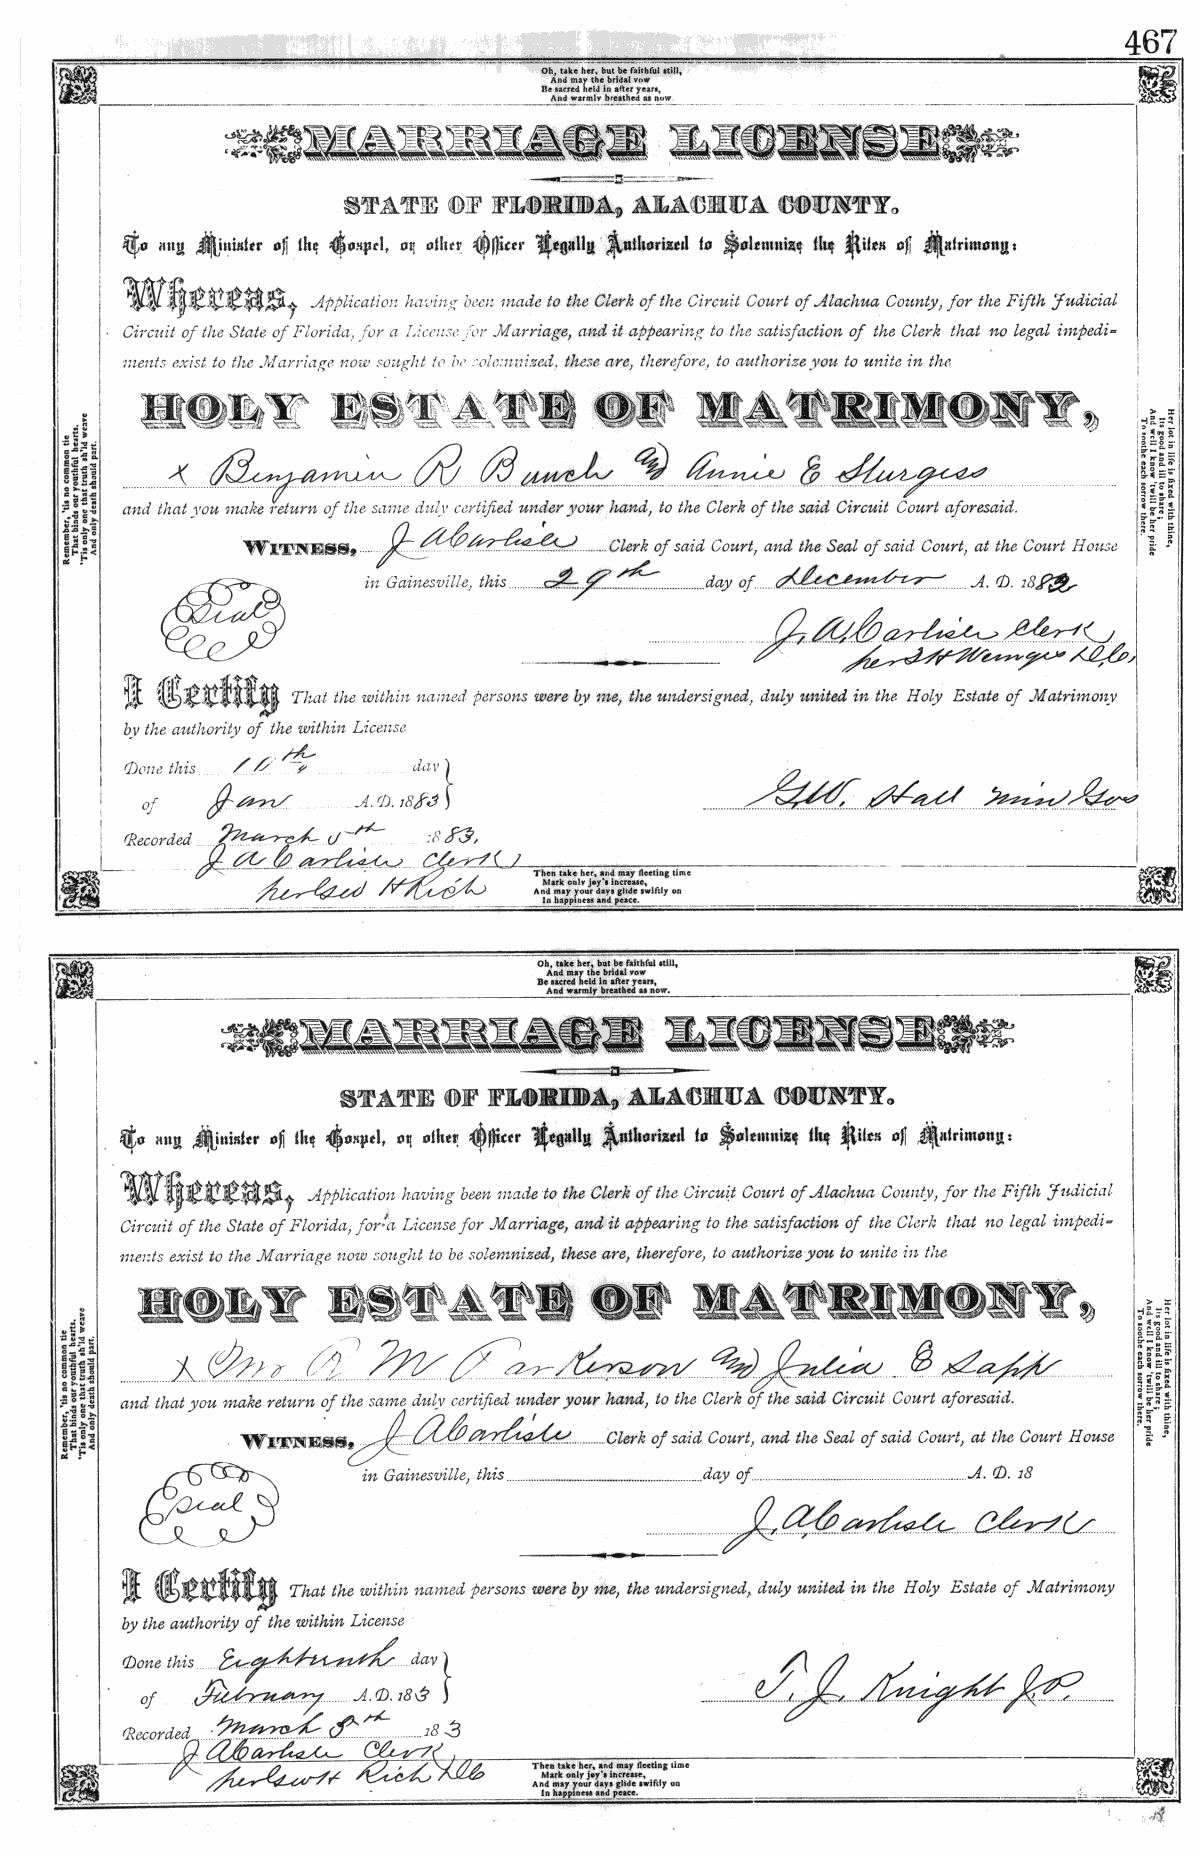 467
Oh, take her, but be faithful still,
And may the bridal vow
Be sacred held in after years,
And warmly breathed as now.
MARRIAGE LICENSE
STATE OF FLORIDA, ALACHUA COUNTY.
To any Minister of the Gospel, or other Officer Legally Authorized to Solemnize the Rites of Matrimony:
Whereas, Application having been made to the Clerk of the Circuit Court of Alachua County, for the Fifth Judicial
Circuit of the State of Florida, for a License for Marriage, and it appearing to the satisfaction of the Clerk that no legal impedi-
ments exist to the Marriage now sought to be solemnized, these are, therefore, to authorize you to unite in the
HOLY ESTATE OF MATRIMONY,
x Benjamin R Bunch and Annie E Sturgess
and that you make return of the same duly certified under your hand, to the Clerk of the said Circuit Court aforesaid.
WITNESS, J A Carlisle Clerk of said Court, and the Seal of said Court, at the Court House
in Gainesville, this 29th day of December A. D. 1882
Seal
J. A. Carlisle Clerk
per H D.C.
I Certify That the within named persons were by me, the undersigned, duly united in the Holy Estate of Matrimony
by the authority of the within License
Done this 10th day
of Jan A. D. 1883
G.W. Hall Min Gos
Recorded March 5th 1883,
J A Carlisle Clerk
per Geo H Rich
Then take her, and may fleeting time
Mark only joy's increase,
And may your days glide swiftly on
In happiness and peace.
Remember, 'tis no common tie
That binds our youthful hearts,
'Tis only one that truth sh'ld weave
And only death should part.
Her lot in life is fixed with thine,
Its good and ill to share;
And well I know 'twill be her pride
To soothe each sorrow there.
Oh, take her, but be faithful still,
And may the bridal vow
Be sacred held in after years,
And warmly breathed as now.
MARRIAGE LICENSE
STATE OF FLORIDA, ALACHUA COUNTY.
To any Minister of the Gospel, or other Officer Legally Authorized to Solemnize the Rites of Matrimony:
Whereas, Application having been made to the Clerk of the Circuit Court of Alachua County, for the Fifth Judicial
Circuit of the State of Florida, for a License for Marriage, and it appearing to the satisfaction of the Clerk that no legal impedi-
ments exist to the Marriage now sought to be solemnized, these are, therefore, to authorize you to unite in the
HOLY ESTATE OF MATRIMONY,
x Jno R M Parkerson and Julia E Sapp
and that you make return of the same duly certified under your hand, to the Clerk of the said Circuit Court aforesaid.
WITNESS, J A Carlisle Clerk of said Court, and the Seal of said Court, at the Court House
in Gainesville, this day of A. D. 18
Seal
J. A. Carlisle Clerk
I Certify That the within named persons were by me, the undersigned, duly united in the Holy Estate of Matrimony
by the authority of the within License
Done this Eighteenth day
of February A. D. 1883
T. J. Knight J.P.
Recorded March 5th 1883
J A Carlisle Clerk
per Geo H Rich D C
Then take her, and may fleeting time
Mark only joy's increase,
And may your days glide swiftly on
In happiness and peace.
Remember, 'tis no common tie
That binds our youthful hearts,
'Tis only one that truth sh'ld weave
And only death should part.
Her lot in life is fixed with thine,
Its good and ill to share;
And well I know 'twill be her pride
To soothe each sorrow there.